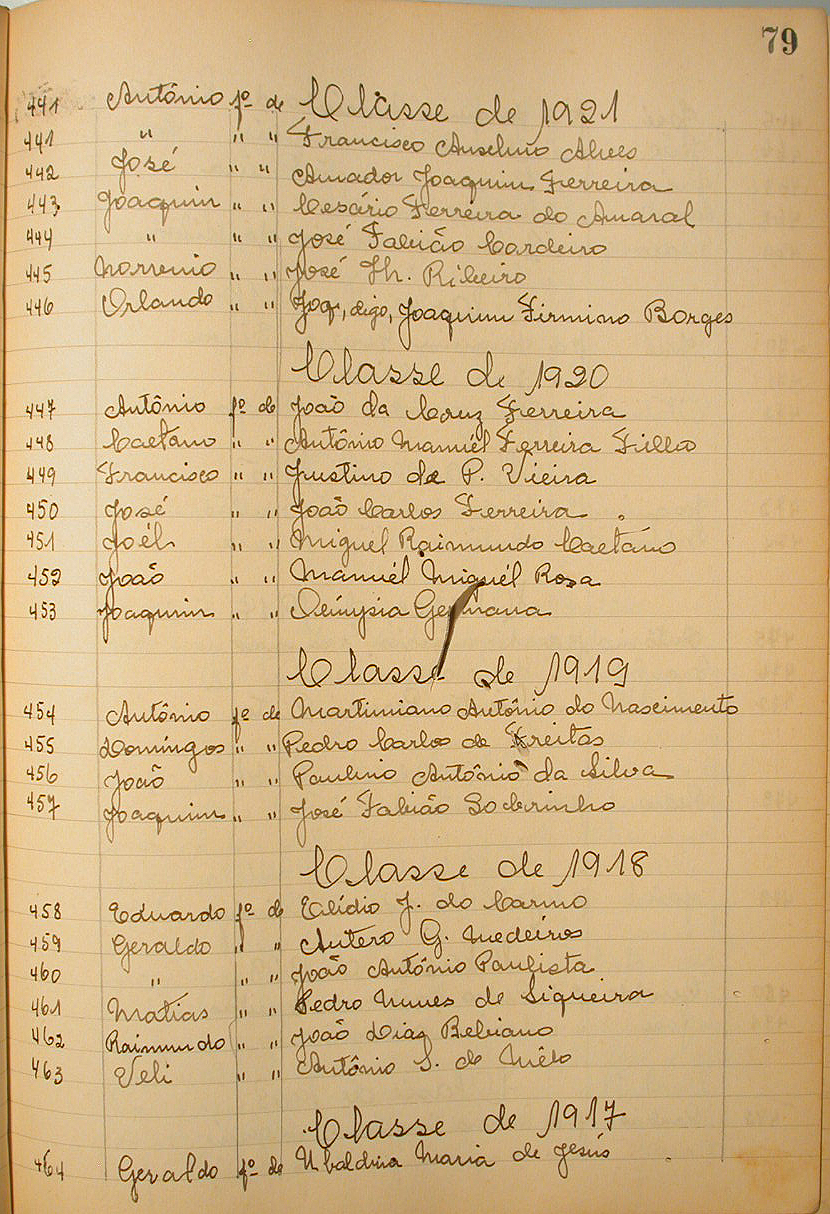 79
441 Antônio fº de Classe de 1921
441 " " " Francisco Anselmo Alves
442 José " " Amador Joaquim Ferreira
443 Joaquim " " Cesário Ferreira do Amaral
444 " " " José Fabião Cordeiro
445 " " José Th. Ribeiro
446 Orlando " " Joq, digo, Joaquim Firmino Borges
Classe de 1920
447 Antônio fº de João da Cruz Ferreira
448 Caetano " " Antônio Manuél Ferreira Filho
449 Francisco " " Justino de P. Vieira
450 José " " João Carlos Ferreira
451 Joél " " Miguel Raimundo Caetano
452 João " " Manuél Miguél Rosa
453 Joaquim " " Germana
Classe de 1919
454 Antônio fº de Martimiano Antônio do Nascimento
455 Domingos " " Pedro Carlos de Freitas
456 João " " Paulino Antônio da Silva
457 Joaquim " " José Fabião Sobrinho
Classe de 1918
458 Eduardo fº de Elídio J. do Carmo
459 Geraldo " " Antero G. Medeiros
460 " " " João Antônio Paulista
461 Matias " " Pedro Nunes de Siqueira
462 Raimundo " " João Dias Belviano
463 Veli " " Antônio S. de Mélo
Classe de 1917
464 Geraldo fº de Ubaldina Maria de Jesús